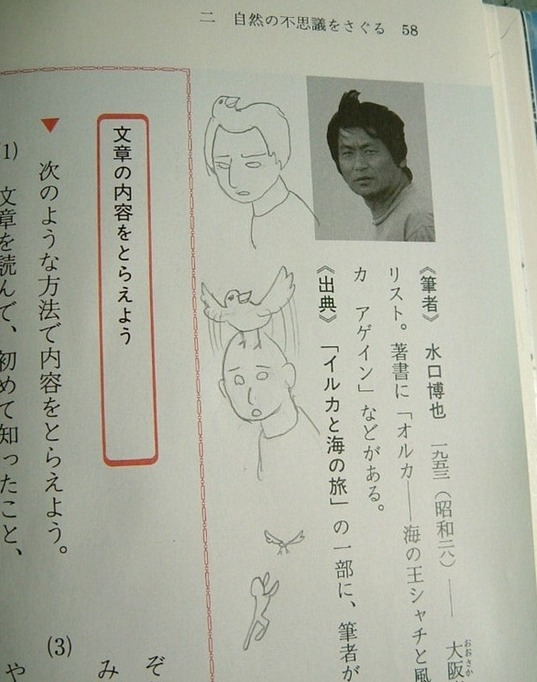 二　自然の不思議をさぐる　58
《筆者》　水口博也　一九五三（昭和二八）――　大阪
おおさか
リスト。著書に「オルカ――海の王シャチと風
カ　アゲイン」などがある。
《出典》　「イルカと海の旅」の一部に、筆者が
文章の内容をとらえよう
▼　次のような方法で内容をとらえよう。
(1)　文章を読んで、初めて知ったこと、
(3)
ぞ
み
や